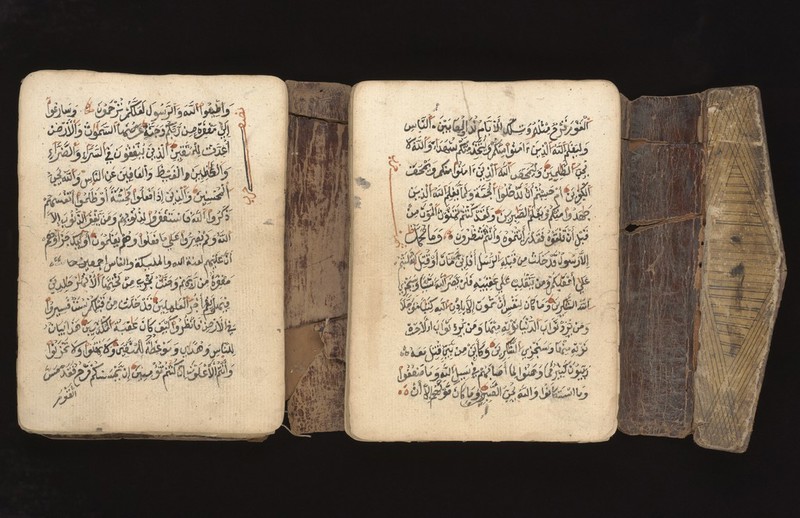 وأطيعوا الله والرسول لعلكم ترحمون وسارعوا
إلى مغفرة من ربكم وجنة عرضها السموات والأرض
أعدت للمتقين الذين ينفقون في السراء والضراء
والكاظمين الغيظ والعافين عن الناس والله يحب
المحسنين والذين إذا فعلوا فحشة أو ظلموا أنفسهم
ذكروا الله فاستغفروا لذنوبهم ومن يغفر الذنوب إلا
الله ولم يصروا على ما فعلوا وهم يعلمون أولئك جزاؤهم
أن عليهم لعنة الله والملئكة والناس أجمعين
مغفرة من ربهم وجنت تجري من تحتها الأنهار خلدين
فيها ونعم أجر العملين قد خلت من قبلكم سنن فسيروا
في الأرض فانظروا كيف كان عقبة المكذبين هذا بيان
للناس وهدى وموعظة للمتقين ولا تهنوا ولا تحزنوا
وأنتم الأعلون إن كنتم مؤمنين إن يمسسكم قرح فقد مس
القوم
القوم قرح مثله وتلك الأيام نداولها بين الناس
وليعلم الله الذين ءامنوا منكم ويتخذ منكم شهداء والله لا
يحب الظلمين وليمحص الله الذين ءامنوا منكم ويمحق
الكفرين أم حسبتم أن تدخلوا الجنة ولما يعلم الله الذين
جهدوا منكم ويعلم الصبرين ولقد كنتم تمنون الموت من
قبل أن تلقوه فقد رأيتموه وأنتم تنظرون وما محمد
إلا رسول قد خلت من قبله الرسل أفإن مات أو قتل انقلبتم
على أعقبكم ومن ينقلب على عقبيه فلن يضر الله شيئا وسيجزي
الله الشكرين وما كان لنفس أن تموت إلا بإذن الله كتبا مؤجلا
ومن يرد ثواب الدنيا نؤته منها ومن يرد ثواب الآخرة
نؤته منها وسنجزي الشكرين وكأين من نبي قتل معه
ربيون كثير فما وهنوا لما أصابهم في سبيل الله وما ضعفوا
وما استكانوا والله يحب الصبرين وما كان قولهم إلا أن